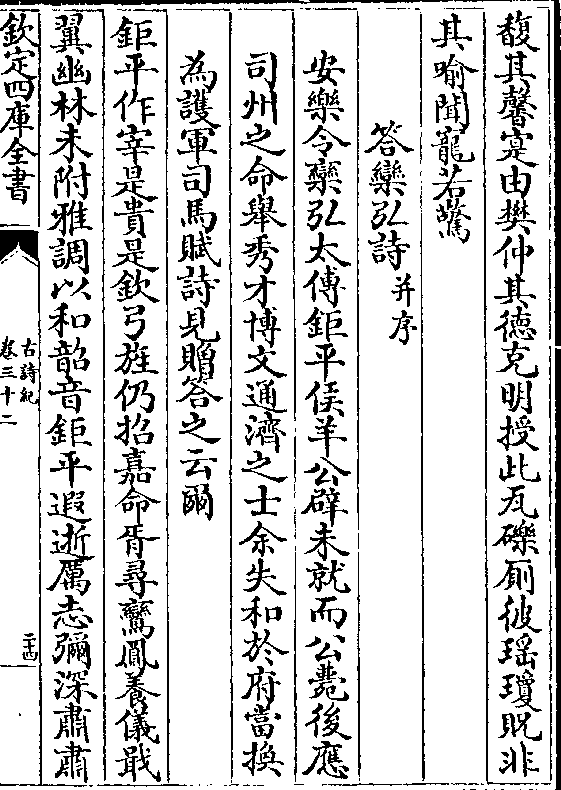 馥其馨寔由樊仲其德克明授此瓦礫厠彼瑶瓊貺非
其喻聞寵若驚
答欒弘詩并序
安樂令欒弘太傅鉅平侯羊公辟未就而公薨後應
司州之命舉秀才博文通濟之士余失和於府當換
為護軍司馬賦詩見贈答之云爾
鉅平作宰是貴是欽弓旌仍招嘉命胥尋鸞鳳養儀戢
翼幽林未附雅調以和韶音鉅平遐逝厲志彌深肅肅
欽定四庫全書
古詩紀
卷三十二
二十四